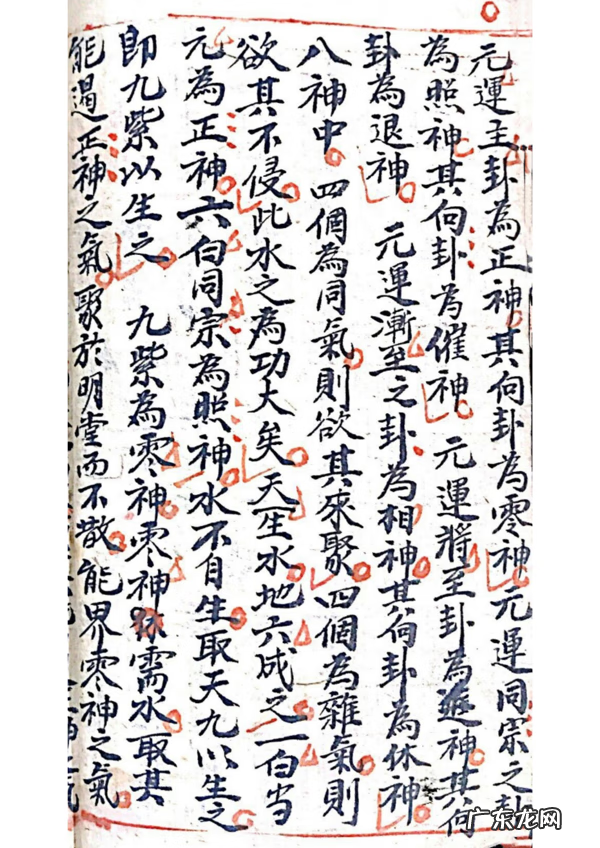 元運主卦為正神其向卦為零神元運同宗之卦
為照神其向卦為催神 元運將至卦為進神其向
卦為退神 元運漸至之卦為相神其向卦為休神
八神中四個為同氣則欲其來聚四個為雜氣則
欲其不侵此水之為功大矣天一生水地六成之一白當
元為正神六白同宗為照神水不自生取天九以生之
即九紫以生之 九紫為零神零神需水取其
能遏正神之氣聚於明堂而不散能界零神之氣
广东龙网